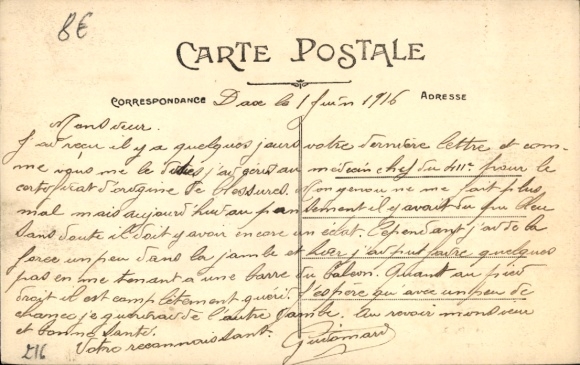 8€
CARTE POSTALE
CORRESPONDANCE Dax le 1 Juin 1916 ADRESSE
Monsieur.
J'ai reçu il y a quelques jours votre dernière lettre et com-
me vous me le dites j'ai écris au médecin chef du 411e pour le
certificat d'origine de blessures. Mon genou ne me fait plus
mal mais aujourd'hui au pansement il y avait du pu
sans doute il doit y avoir encore un éclat. Cependant j'ai de la
force un peu dans la jambe et hier j'ai put faire quelques
pas en me tenant a une barre du balcon. Quant au pied
droit il est complètement guéri. J'espère qu'avec un peu de
chance je guérirai de l'autre jambe. Au revoir monsieur
et bonne santé.
Votre reconnaissant. Guiomard
216